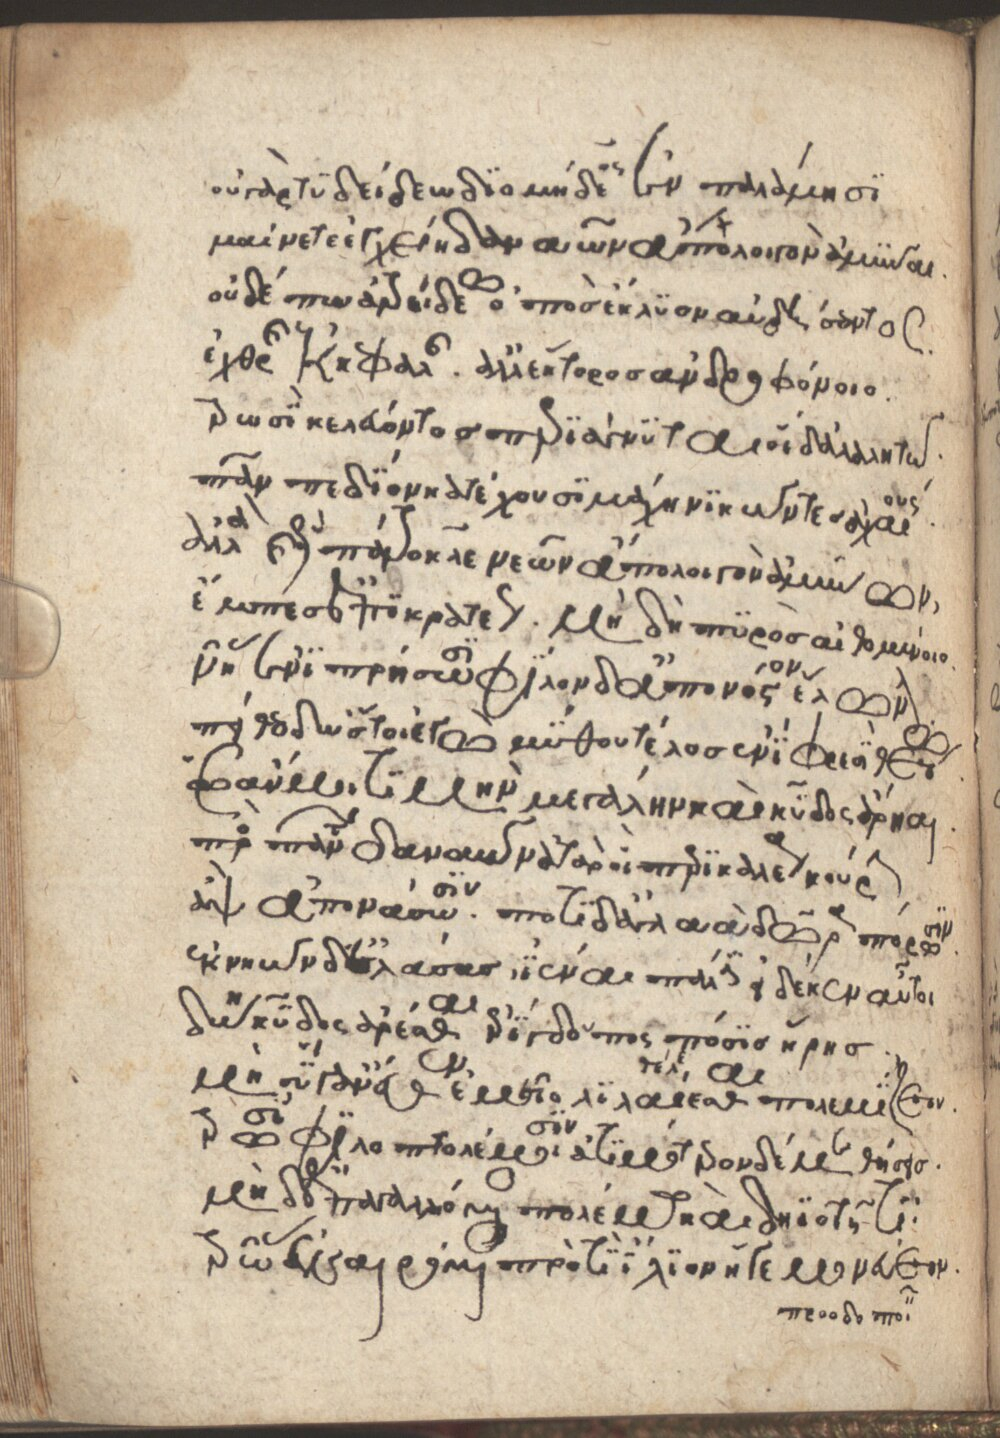 οὐ γὰρ τυδείδεω δϊομήδεος ἐν παλάμησϊ
μαίνετε ἐγχείη δαναῶν ἀπὸ λοιγὸν ἀμῦναι.
οὐδέ πω ἀτρείδεω ὀπὸσ ἔκλϋον αὐδήσαντος.
ἐχθρῆς ἐκ κεφαλῆς. ἀλλ ἕκτοροσ ἀνδροφόνοιο.
τρωσῒ κελεύοντοσ περϊάγνϋται οἵ δ ἀλαλητῶ.
πᾶν πεδϊόν κατέχουσϊ μάχη νϊκῶντεσ ἀχαιούς.
ἀλλὰ καὶ ὣς πάτροκλε νεῶν ἄπο λοιγὸν ἀμύνων,
ἔμπεσ ἐπϊκρατέως. μὴ δὴ πϋρὸσ αἰθομένοιο.
νῆας ἐνϊπρήσωσϊ φΐλον δ ἄπο νόστον ἕλωνται.
πείθεο δ ὥς τοι ἐγὼ μύθου τέλοσ ἐνῒ φρεσῒ θείω
ὡς ἄν μοι τϊμὴν μεγάλην καὶ κῦδος ἄρηαι.
πρὸς πάντων δαναῶν ἀτὰρ οἳ περϊκαλέα κούρην
ἂψ ἀπονάσωσϊν. ποτῒ δ ἀγλαὰ δῶρα πόρωσϊν.
ἐκ νηῶν δ ἐλάσασ ἰέναι πάλϊν εἰ δέ κεν αὖ τοι
δώη κῦδος ἀρέσθαι ἐρΐγδουπος πόσϊσ ἥρησ.
μὴ σύ γ ἄνευθεν ἐμεῖο λϊλαίεσθαι πολεμΐζειν.
τρωσῒ φϊλοπτολέμοισϊν ἀτϊμότερον δέ με θήσεισ.
μὴ δ ἐπαγαλλόμενος πολέμω καὶ δηϊοτῆτϊ.
τρῶας ἐναιρόμενος προτῒ ἴλϊον ἡγεμονεύειν.